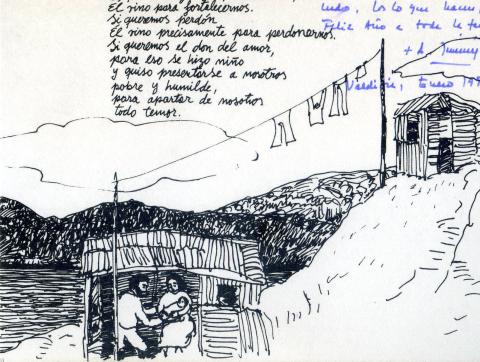 El vino para fortalecernos.
Si queremos perdón
El vino precisamente para perdonarnos.
Si queremos el don del amor,
para eso se hizo niño
y quiso presentarse a nosotros
pobre y humilde,
para apartar de nosotros
todo temor.
lo que
Feliz Año a toda
Valdivia, Enero